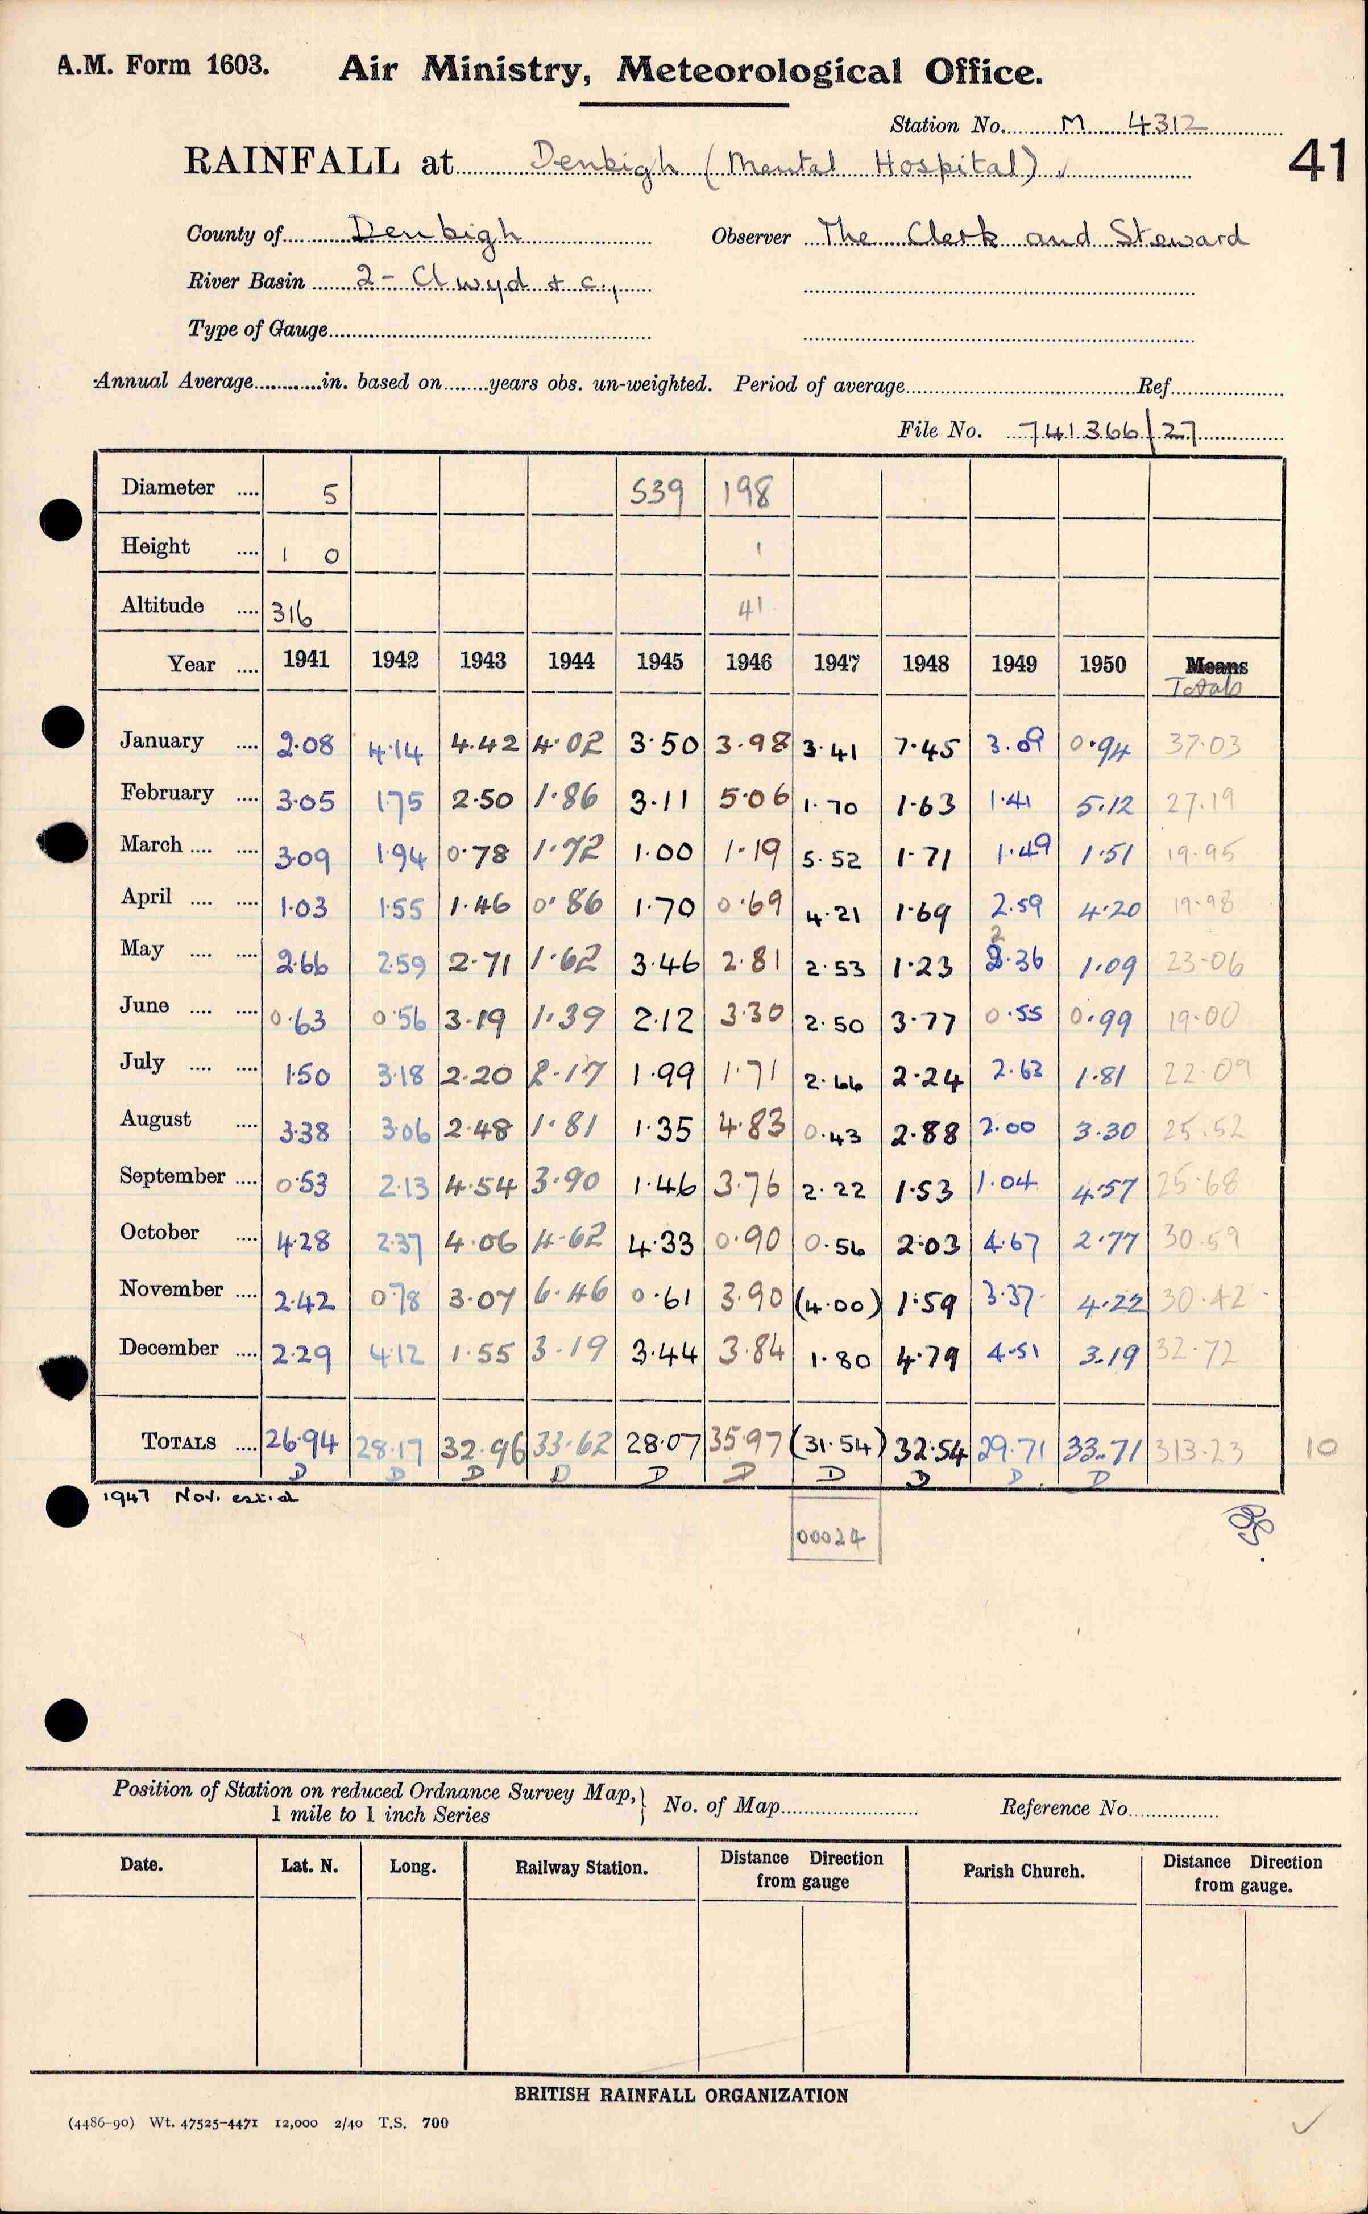 A.M. Form 1603. Air Ministry, Meteorological Office.
Station No. M 4312
RAINFALL at Denbigh (Mental Hospital) ✓ 41
County of Denbigh Observer The Clerk and Steward
River Basin 2 - Clwyd & c.,
Type of Gauge
Annual Average in. based on years obs. un-weighted. Period of average Ref.
File No. 741366/27
Diameter .... 5 539 198
Height .... 1 0 1
Altitude .... 316 41
Year .... 1941 1942 1943 1944 1945 1946 1947 1948 1949 1950 Means
Totals
January .... 2.08 4.14 4.42 4.02 3.50 3.98 3.41 7.45 3.09 0.94 37.03
February .... 3.05 1.75 2.50 1.86 3.11 5.06 1.70 1.63 1.41 5.12 27.19
March .... .... 3.09 1.94 0.78 1.72 1.00 1.19 5.52 1.71 1.49 1.51 19.95
April .... .... 1.03 1.55 1.46 0.86 1.70 0.69 4.21 1.69 2.59 4.20 19.98
2
May .... .... 2.66 2.59 2.71 1.62 3.46 2.81 2.53 1.23 2.36 1.09 23.06
June .... .... 0.63 0.56 3.19 1.39 2.12 3.30 2.50 3.77 0.55 0.99 19.00
July .... .... 1.50 3.18 2.20 2.17 1.99 1.71 2.66 2.24 2.63 1.81 22.09
August .... 3.38 3.06 2.48 1.81 1.35 4.83 0.43 2.88 2.00 3.30 25.52
September .... 0.53 2.13 4.54 3.90 1.46 3.76 2.22 1.53 1.04 4.57 25.68
October .... 4.28 2.37 4.06 4.62 4.33 0.90 0.56 2.03 4.67 2.77 30.59
November .... 2.42 0.78 3.07 6.46 0.61 3.90 (4.00) 1.59 3.37 4.22 30.42
December .... 2.29 4.12 1.55 3.19 3.44 3.84 1.80 4.79 4.51 3.19 32.72
TOTALS .... 26.94 28.17 32.96 33.62 28.07 35.97 (31.54) 32.54 29.71 33.71 313.23 10
D D D D D D D D D D
1947 Nov. est.d
00024
Position of Station on reduced Ordnance Survey Map,
1 mile to 1 inch Series } No. of Map Reference No.
Date. Lat. N. Long. Railway Station. Distance Direction from gauge Parish Church. Distance Direction from gauge.
BRITISH RAINFALL ORGANIZATION
(4486-90) Wt. 47525-4471 12,000 2/40 T.S. 700